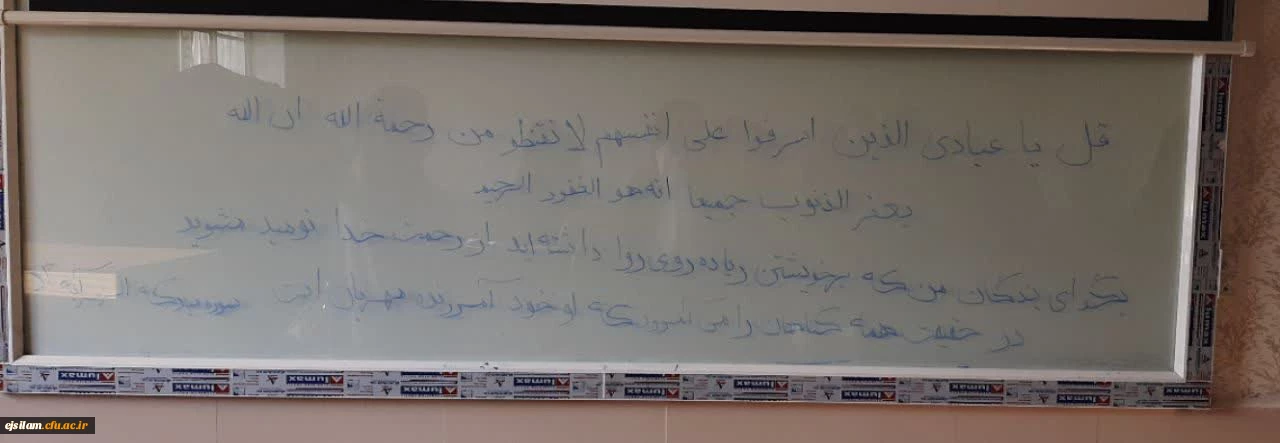 قل یا عبادی الذین اسرفوا علی انفسهم لا تقنطو من رحمة الله ان الله
یغفر الذنوب جمیعا انه هو الغفور الرحیم
بگو ای بندگان من که بر خویشتن زیاده روی روا داشته اید از رحمت خدا نومید مشوید
در حقیقت همه گناهان را می آمرزد که او خود آمرزنده مهربان است سوره مبارکه آیه ۵۳
Alumax
ejsilam.cfu.ac.ir